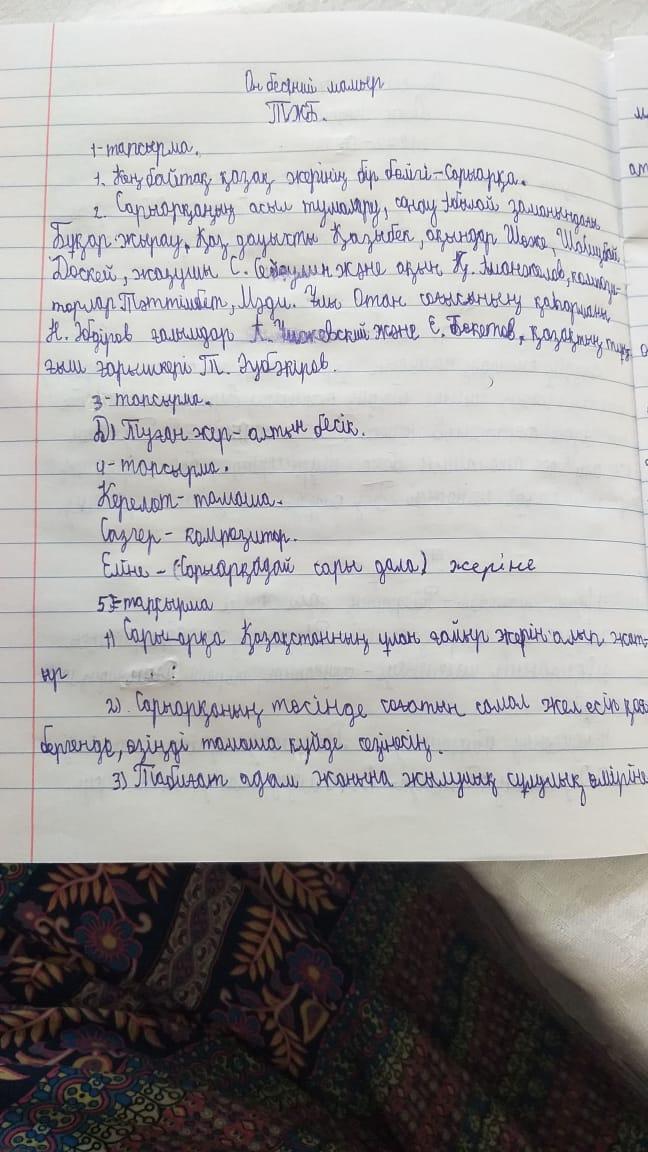 Он бесінші мамыр
ТЖБ.
1-тапсырма.
1. Кең байтақ қазақ жерінің бір бөлігі-Сарыарқа.
2. Сарыарқаның асыл тумалары, сонау Абылай заманындағы
Бұқар жырау, Қаз дауысты Қазыбек, ақындар Шөже, Шашубай
Доскей, жазушы С. Сейфуллин және ақын Қ. Аманжолов, компози-
торлар Тәттімбет, Мәди. Ұлы Отан соғысының қаһарманы
Н. Әбдіров ғалымдар А. Чижевский және Е. Бөкетов, қазақтың тұң-
ғыш ғарышкері Т. Әубәкіров.
3-тапсырма.
Д) Туған жер-алтын бесік.
4-тапсырма.
Керемет-тамаша.
Сазгер-композитор.
Еліне-(Сарыарқадай сары дала) жеріне
5-тапсырма
1) Сарыарқа Қазақстанның ұлан ғайыр жерін алып жат-
ыр
2) Сарыарқаның төсінде соғатын самал жел есіп қоя
бергенде, өзіңді тамаша күйде сезінесің.
3) Табиғат адам жанына жылулық сұлулық өміріне